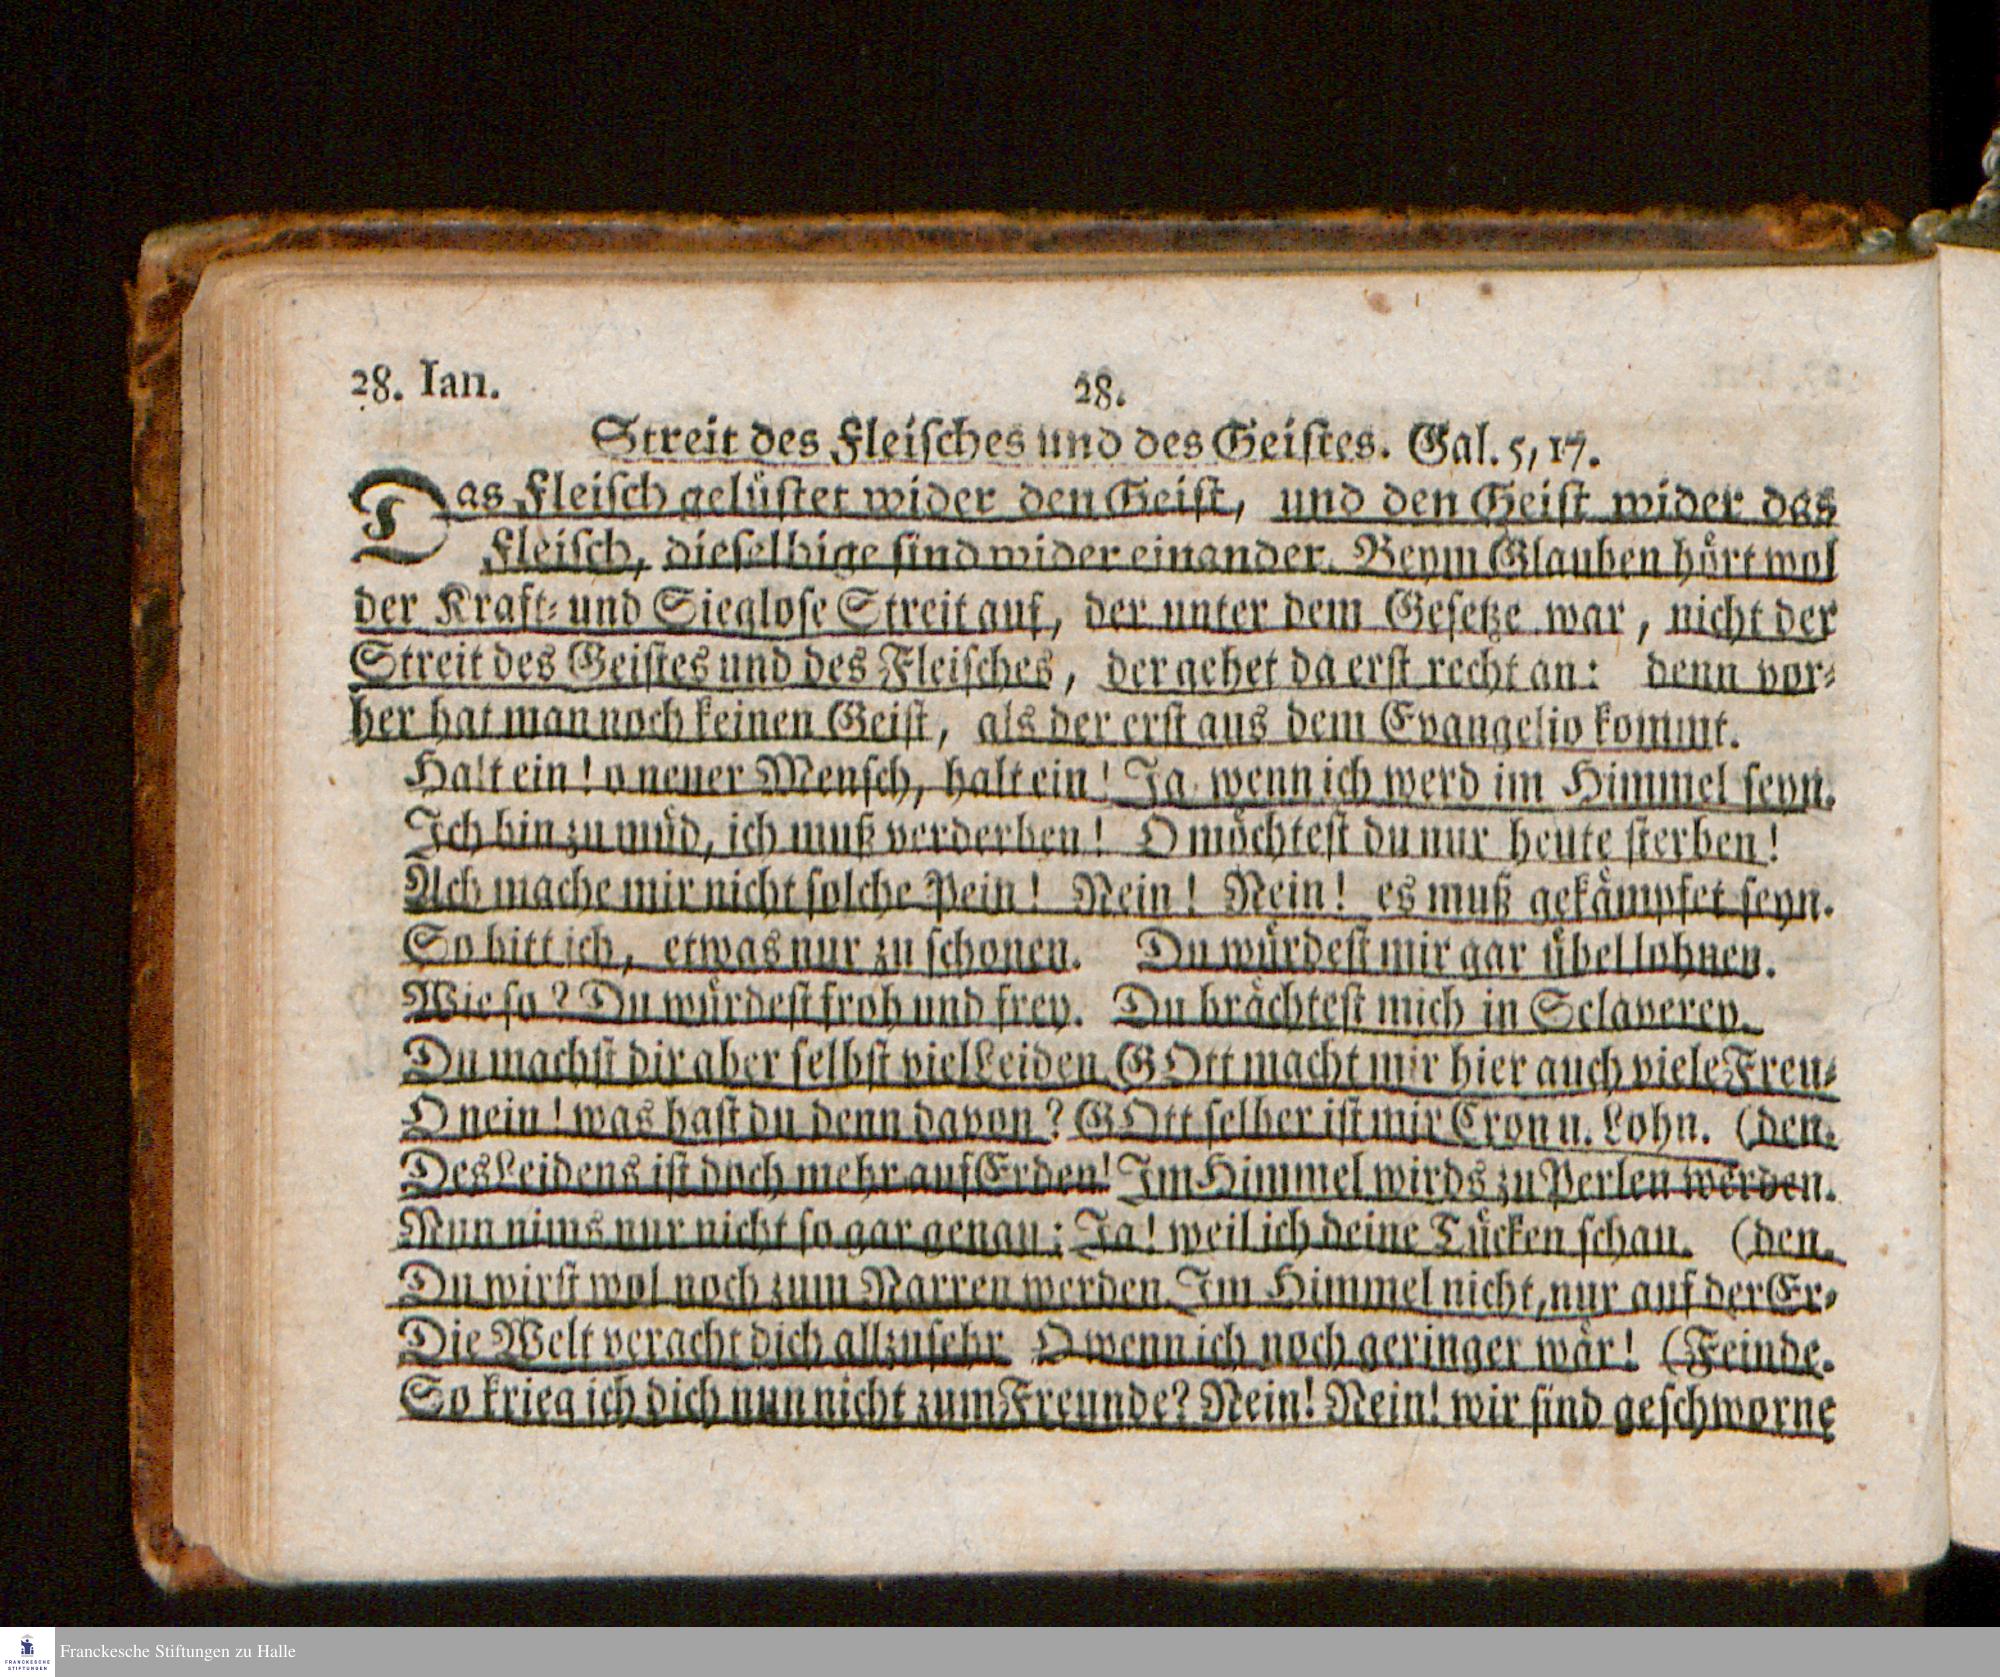 28. Ian.
28.
Streit des Fleisches und des Geistes. Gal. 5, 17.
Das Fleisch gelüstet wider den Geist, und den Geist wider das
Fleisch, dieselbige sind wider einander. Beym Glauben hört wol
der Kraft- und Sieglose Streit auf, der unter dem Gesetze war, nicht der
Streit des Geistes und des Fleisches, der gehet da erst recht an: denn vor-
her hat man noch keinen Geist, als der erst aus dem Evangelio kommt.
Halt ein! o neuer Mensch, halt ein! Ja wenn ich werd im Himmel seyn.
Ich bin zu müd, ich muß verderben! O möchtest du nur heute sterben!
Ach mache mir nicht solche Pein! Nein! Nein! es muß gekämpfet seyn.
So bitt ich, etwas nur zu schonen. Du würdest mir gar übel lohnen.
Wie so? Du würdest froh und frey. Du brächtest mich in Sclaverey.
Du machst dir aber selbst viel Leiden. GOtt macht mir hier auch viele Freu-
O nein! was hast du denn davon? GOtt selber ist mir Cron u. Lohn. (den.
Des Leidens ist doch mehr auf Erden! Im Himmel wirds zu Perlen werden.
Nun nims nur nicht so gar genau: Ja! weil ich deine Tücken schau. (den.
Du wirst wol noch zum Narren werden. Im Himmel nicht, nur auf der Er-
Die Welt veracht dich allzusehr O wenn ich noch geringer wär! (Feinde.
So krieg ich dich nun nicht zum Freunde? Nein! Nein! wir sind geschworne
FRANCKESCHE
STIFTUNGEN
Franckesche Stiftungen zu Halle